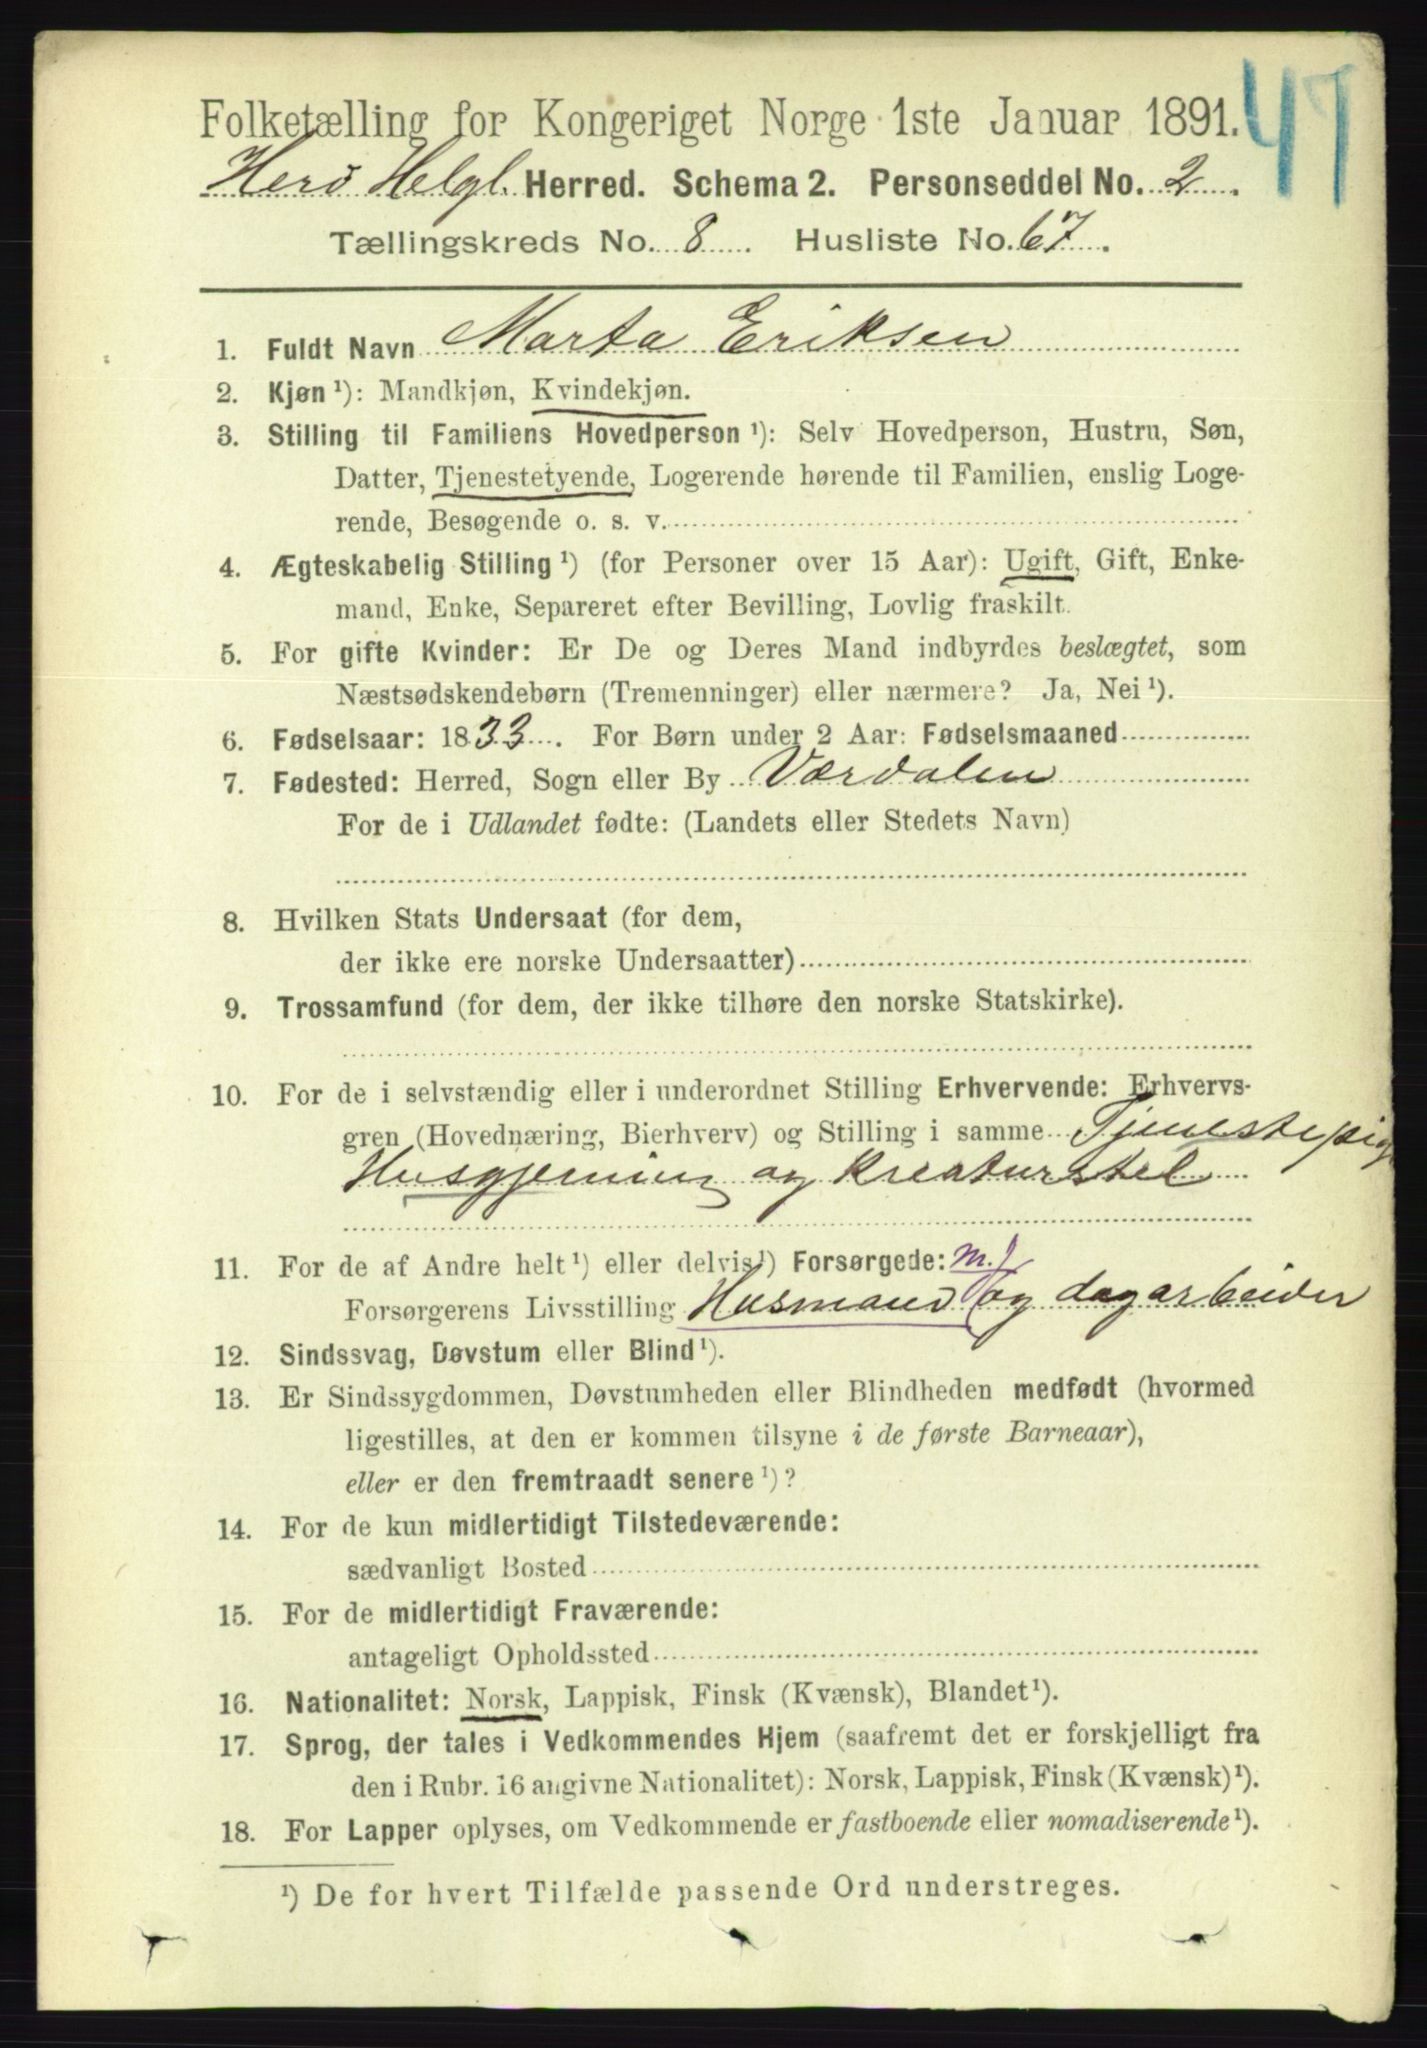 47
Folketælling for Kongeriget Norge 1ste Januar 1891.
Herö Helgl. Herred. Schema 2. Personseddel No. 2.
Tællingskreds No. 8. Husliste No. 67.
1. Fuldt Navn Marta Eriksen
2. Kjøn ¹): Mandkjøn, Kvindekjøn.
3. Stilling til Familiens Hovedperson ¹): Selv Hovedperson, Hustru, Søn,
Datter, Tjenestetyende, Logerende hørende til Familien, enslig Loge-
rende, Besøgende o. s. v.
4. Ægteskabelig Stilling ¹) (for Personer over 15 Aar): Ugift, Gift, Enke-
mand, Enke, Separeret efter Bevilling, Lovlig fraskilt.
5. For gifte Kvinder: Er De og Deres Mand indbyrdes beslægtet, som
Næstsødskendebørn (Tremenninger) eller nærmere? Ja, Nei ¹).
6. Fødselsaar: 1833. For Børn under 2 Aar: Fødselsmaaned
7. Fødested: Herred, Sogn eller By Værdalen
For de i Udlandet fødte: (Landets eller Stedets Navn)
8. Hvilken Stats Undersaat (for dem,
der ikke ere norske Undersaatter)
9. Trossamfund (for dem, der ikke tilhøre den norske Statskirke).
10. For de i selvstændig eller i underordnet Stilling Erhvervende: Erhvervs-
gren (Hovednæring, Bierhverv) og Stilling i samme Tjenestepig
Husgjerning og Kreaturstel
11. For de af Andre helt ¹) eller delvis ¹) Forsørgede: m.f
Forsørgerens Livsstilling Husmand og dagarbeider
12. Sindssvag, Døvstum eller Blind ¹).
13. Er Sindssygdommen, Døvstumheden eller Blindheden medfødt (hvormed
ligestilles, at den er kommen tilsyne i de første Barneaar),
eller er den fremtraadt senere ¹)?
14. For de kun midlertidigt Tilstedeværende:
sædvanligt Bosted
15. For de midlertidigt Fraværende:
antageligt Opholdssted
16. Nationalitet: Norsk, Lappisk, Finsk (Kvænsk), Blandet ¹).
17. Sprog, der tales i Vedkommendes Hjem (saafremt det er forskjelligt fra
den i Rubr. 16 angivne Nationalitet): Norsk, Lappisk, Finsk (Kvænsk) ¹).
18. For Lapper oplyses, om Vedkommende er fastboende eller nomadiserende ¹).
¹) De for hvert Tilfælde passende Ord understreges.